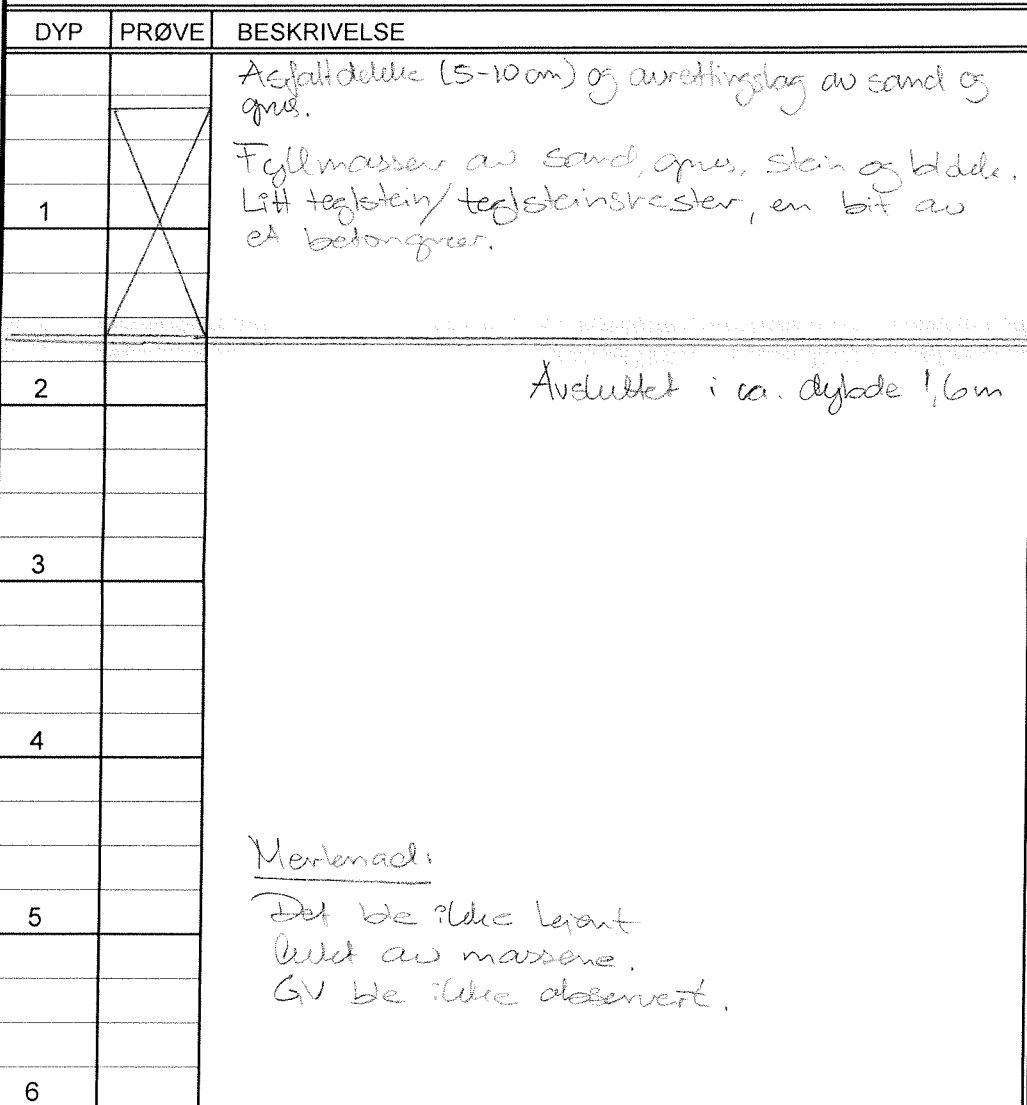 DYP PRØVE BESKRIVELSE
Asfaltdekke (5-10 cm) og avrettingslag av sand og
grus.
Fyllmasser av sand, grus, stein og blokk.
1
Litt teglstein/teglsteinsrester, en bit av
et betongrør.
2
Avsluttet i ca. dybde 1,6m
3
4
Merknad:
5
Det ble ikke kjent
lukt av massene.
GV ble ikke observert.
6